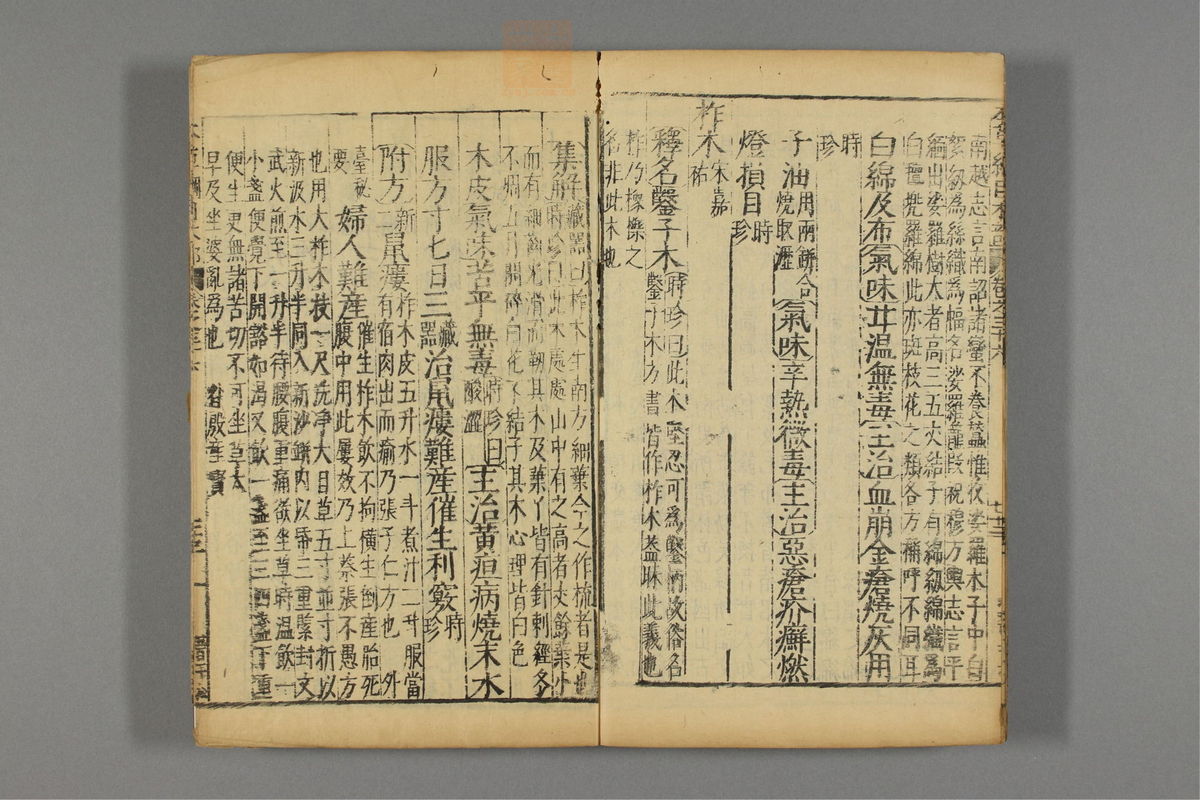 南越志言南詔諸蠻不養蠶惟收娑羅木子中白
絮紉為絲織為幅名娑羅籠段祝穆方輿志言平
緬出娑羅樹大者高三五丈結子有綿紉綿織為
白氊兜羅綿此亦斑枝花之類各方稱呼不同耳
白綿及布氣味甘溫無毒主治血崩金瘡燒灰用
時珍
子油用兩餅合燒取瀝氣味辛熱微毒主治惡瘡疥癬燃
燈損目時珍
柞木宋嘉祐
釋名鑿子木時珍曰此木堅忍可為鑿柄故俗名
鑿子木方書皆作柞木蓋昧此義也
柞乃橡櫟之
名非此木也
集解藏器曰柞木生南方細葉今之作梳者是也
時珍曰此木處處山中有之高者丈餘葉小
而有細齒光滑而韌其木及葉丫皆有針刺經冬
不凋五月開碎白花不結子其木心理皆白色
木皮氣味苦平無毒時珍曰酸澀主治黃疸病燒末水
服方寸匕日三藏器治鼠瘻難產催生利竅時珍
附方新二鼠瘻柞木皮五升水一斗煮汁二升服當
有宿肉出而愈乃張子仁方也外
臺秘要
婦人難產催生柞木飲不拘橫生倒產胎死
腹中用此屢效乃上蔡張不愚方
也用大柞木枝一尺洗淨大甘草五寸並寸折以
新汲水三升半同入新沙餅內以紙三重緊封文
武火煎至一升半待腰腹重痛欲坐草時溫飲一
小盞便覺下開豁如渴又飲一盞至三四盞下重
便生更無諸苦切不可坐草太
早及坐婆亂為也